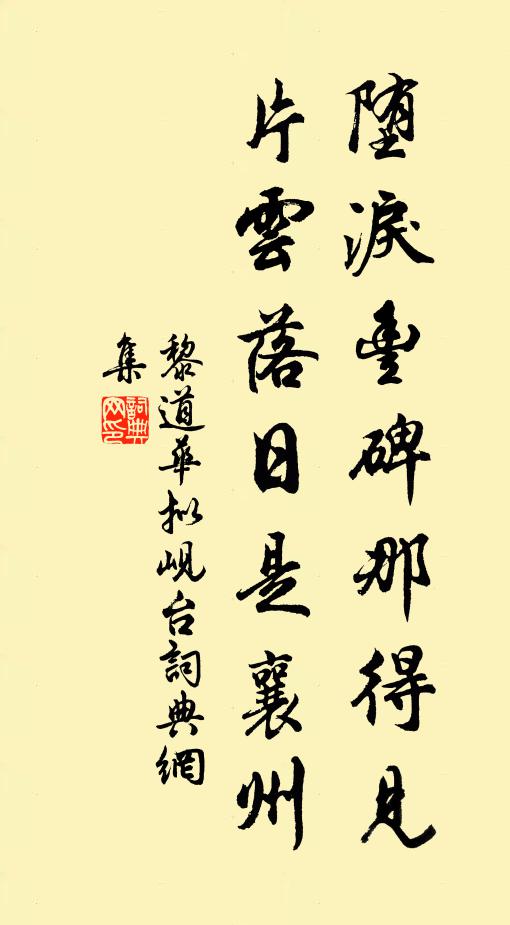 堕淚豊碑那得見
片雲落日是襄州
黎道華拟峴台詞典網
集
詞典
网印